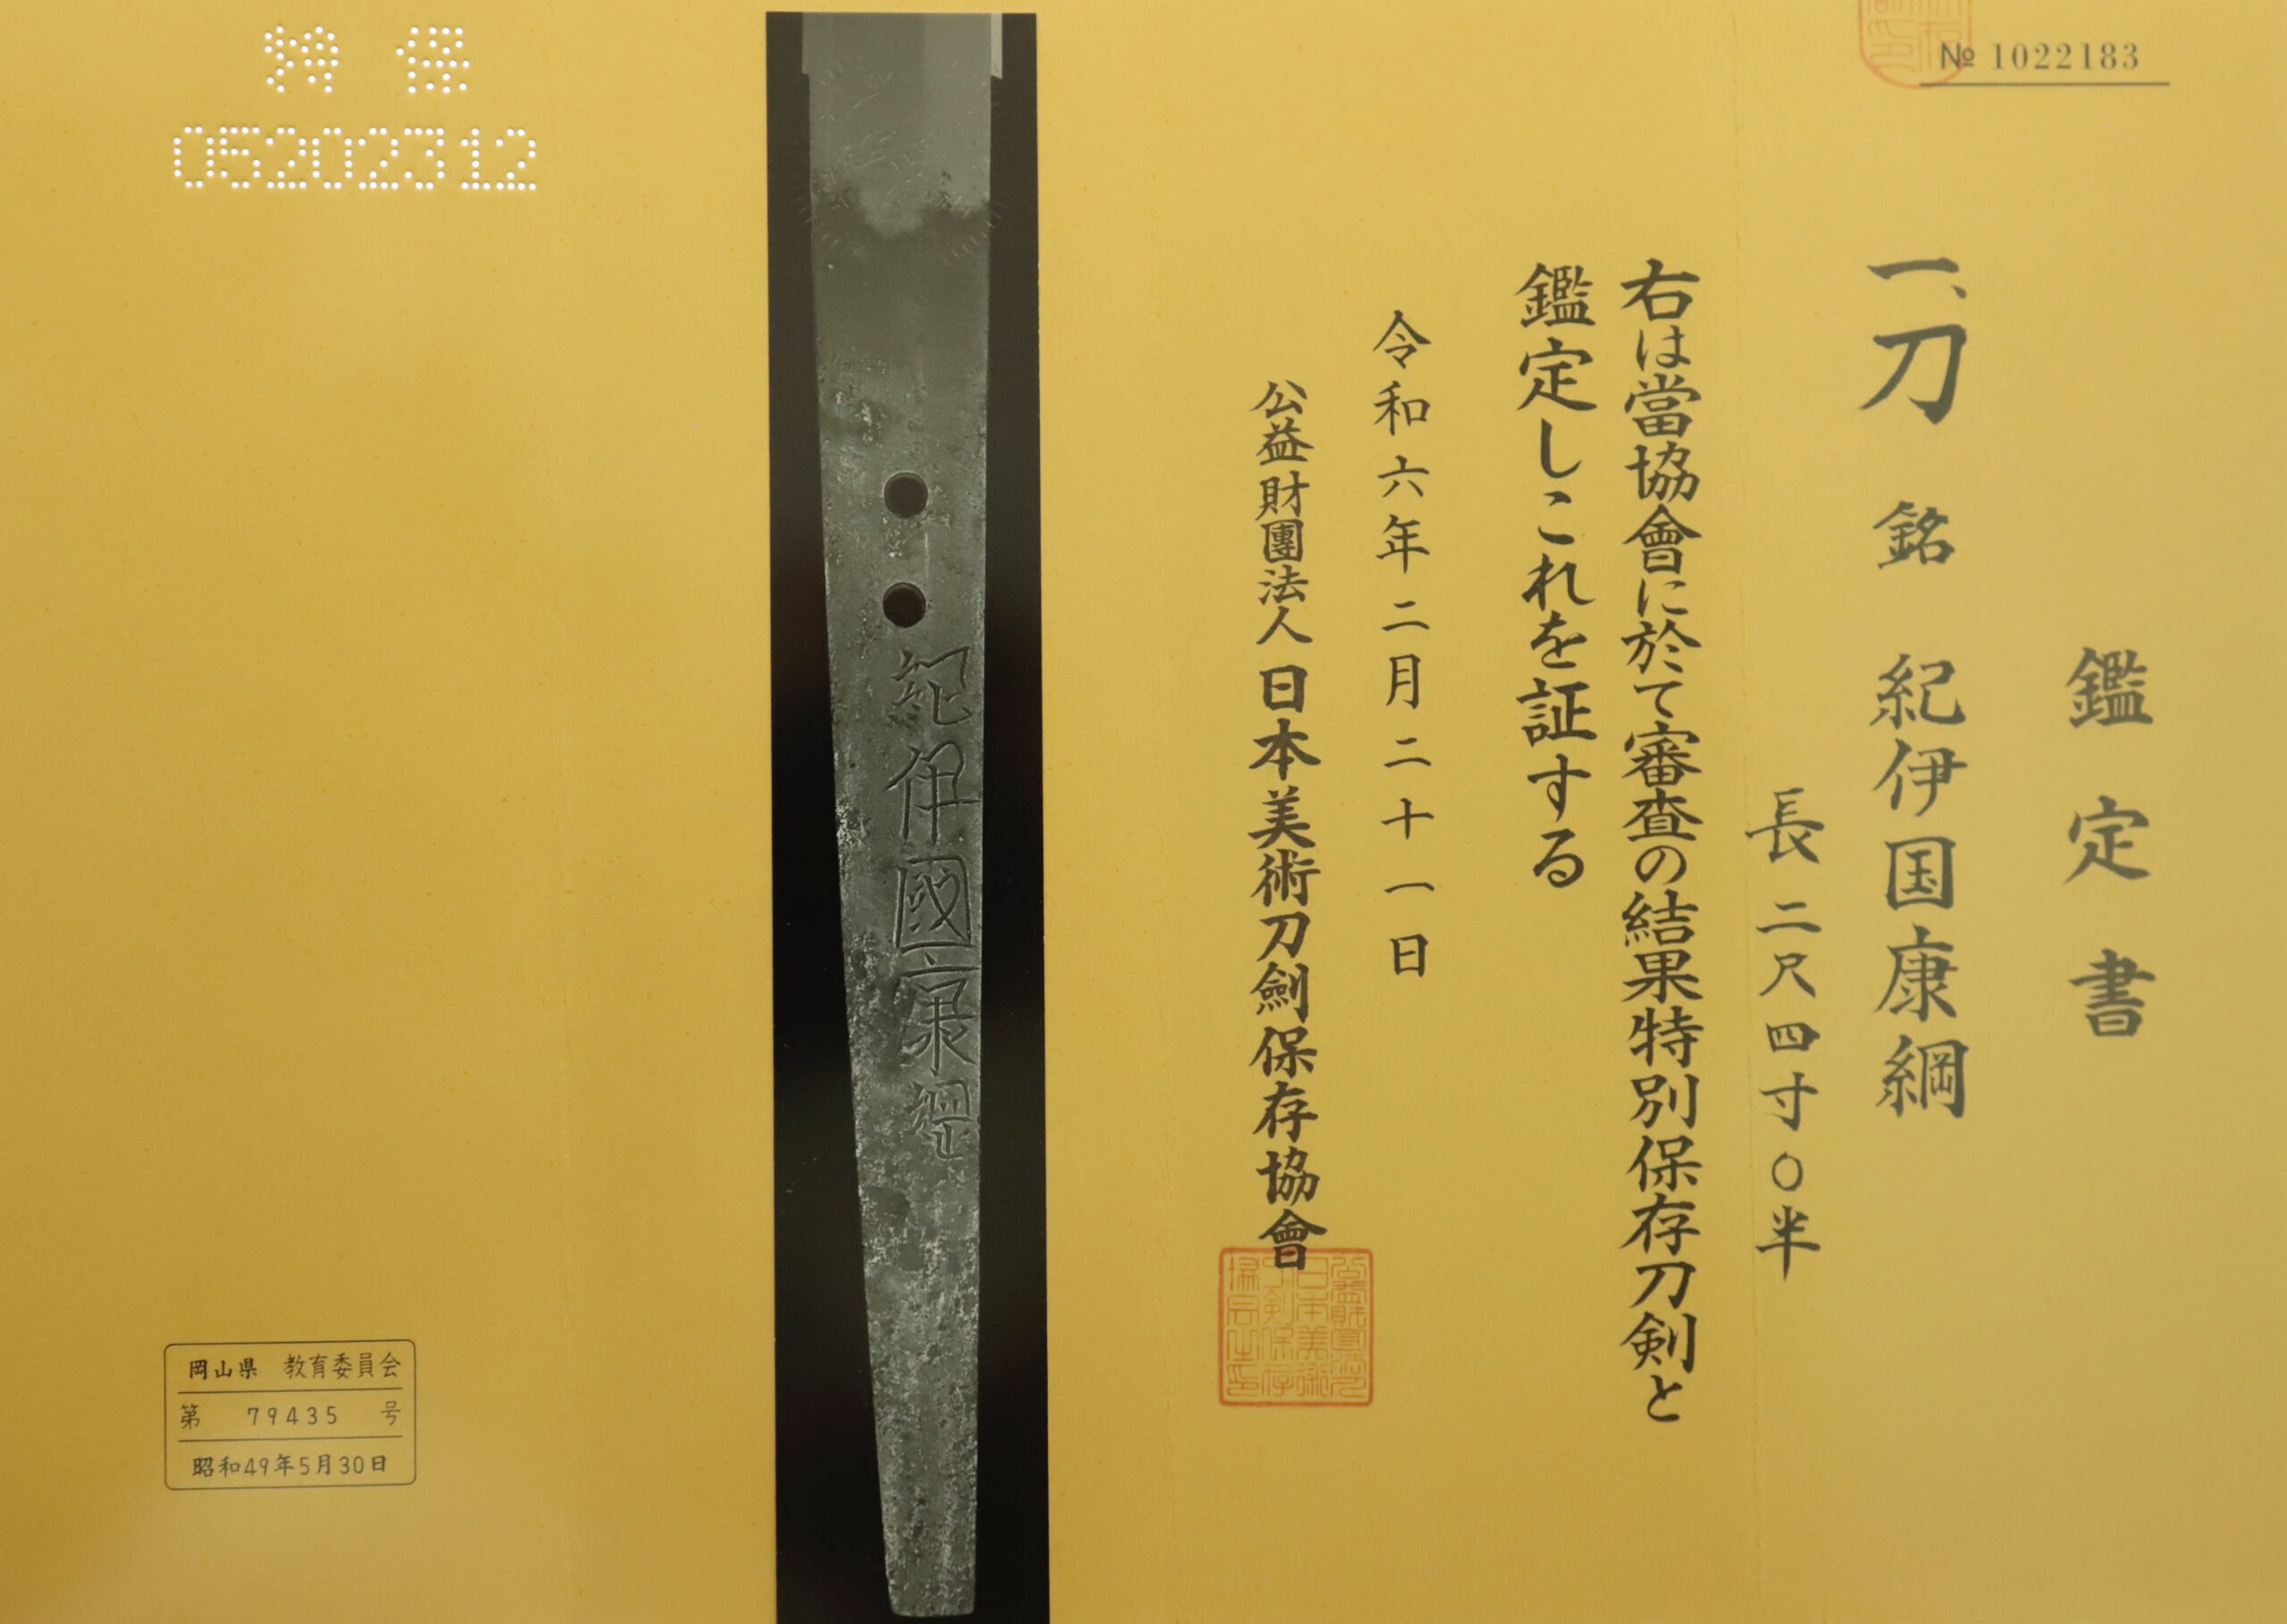 № 1022183
鑑定書
一、刀 銘 紀伊国康綱
長二尺四寸〇半
右は當協會に於て審査の結果特別保存刀剣と
鑑定しこれを証する
令和六年二月二十一日
公益財團法人日本美術刀劍保存協會
紀伊國康綱
特保
05202312
岡山県 教育委員会
第 79435 号
昭和49年5月30日